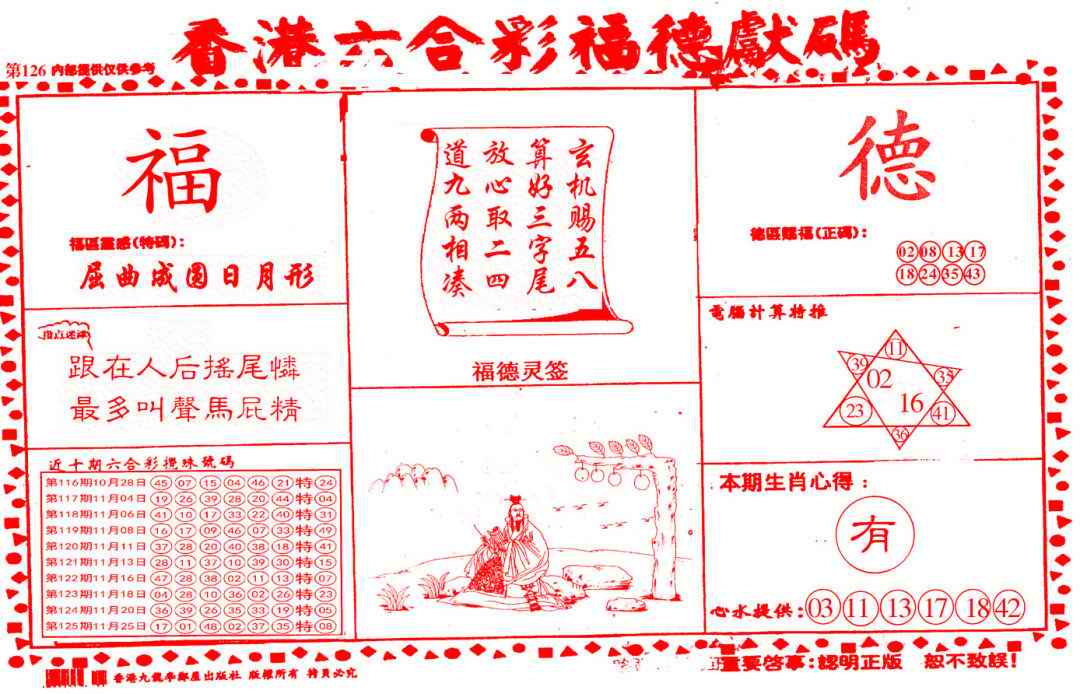 香港六合彩福德獻碼
第126 内部提供仅供参考
福
福區靈感(特碼):
屈曲成圆日月形
指点迷津
跟在人后摇尾憐
最多叫聲馬屁精
近十期六合彩攪珠號碼
第116期10月28日 45 07 15 04 46 21 特 24
第117期11月04日 19 26 39 28 20 44 特 04
第118期11月06日 41 10 17 33 22 40 特 31
第119期11月08日 16 17 09 46 07 33 特 49
第120期11月11日 37 28 20 40 38 18 特 41
第121期11月13日 28 11 37 10 39 30 特 15
第122期11月16日 47 28 38 02 11 13 特 07
第123期11月18日 04 28 10 36 02 26 特 23
第124期11月20日 36 39 26 35 33 19 特 05
第125期11月25日 17 01 48 02 37 35 特 08
玄机赐五八
算好三字尾
放心取二四
道九两相凑
福德灵签
德
德區賜福(正碼):
02 08 13 17
18 24 35 43
電腦計算特推
11
39 33
02
16
23 41
36
本期生肖心得:
有
心水提供: 03 11 13 17 18 42
重要啓事:認明正版 恕不致誤!
香港九龍 出版社 版權所有